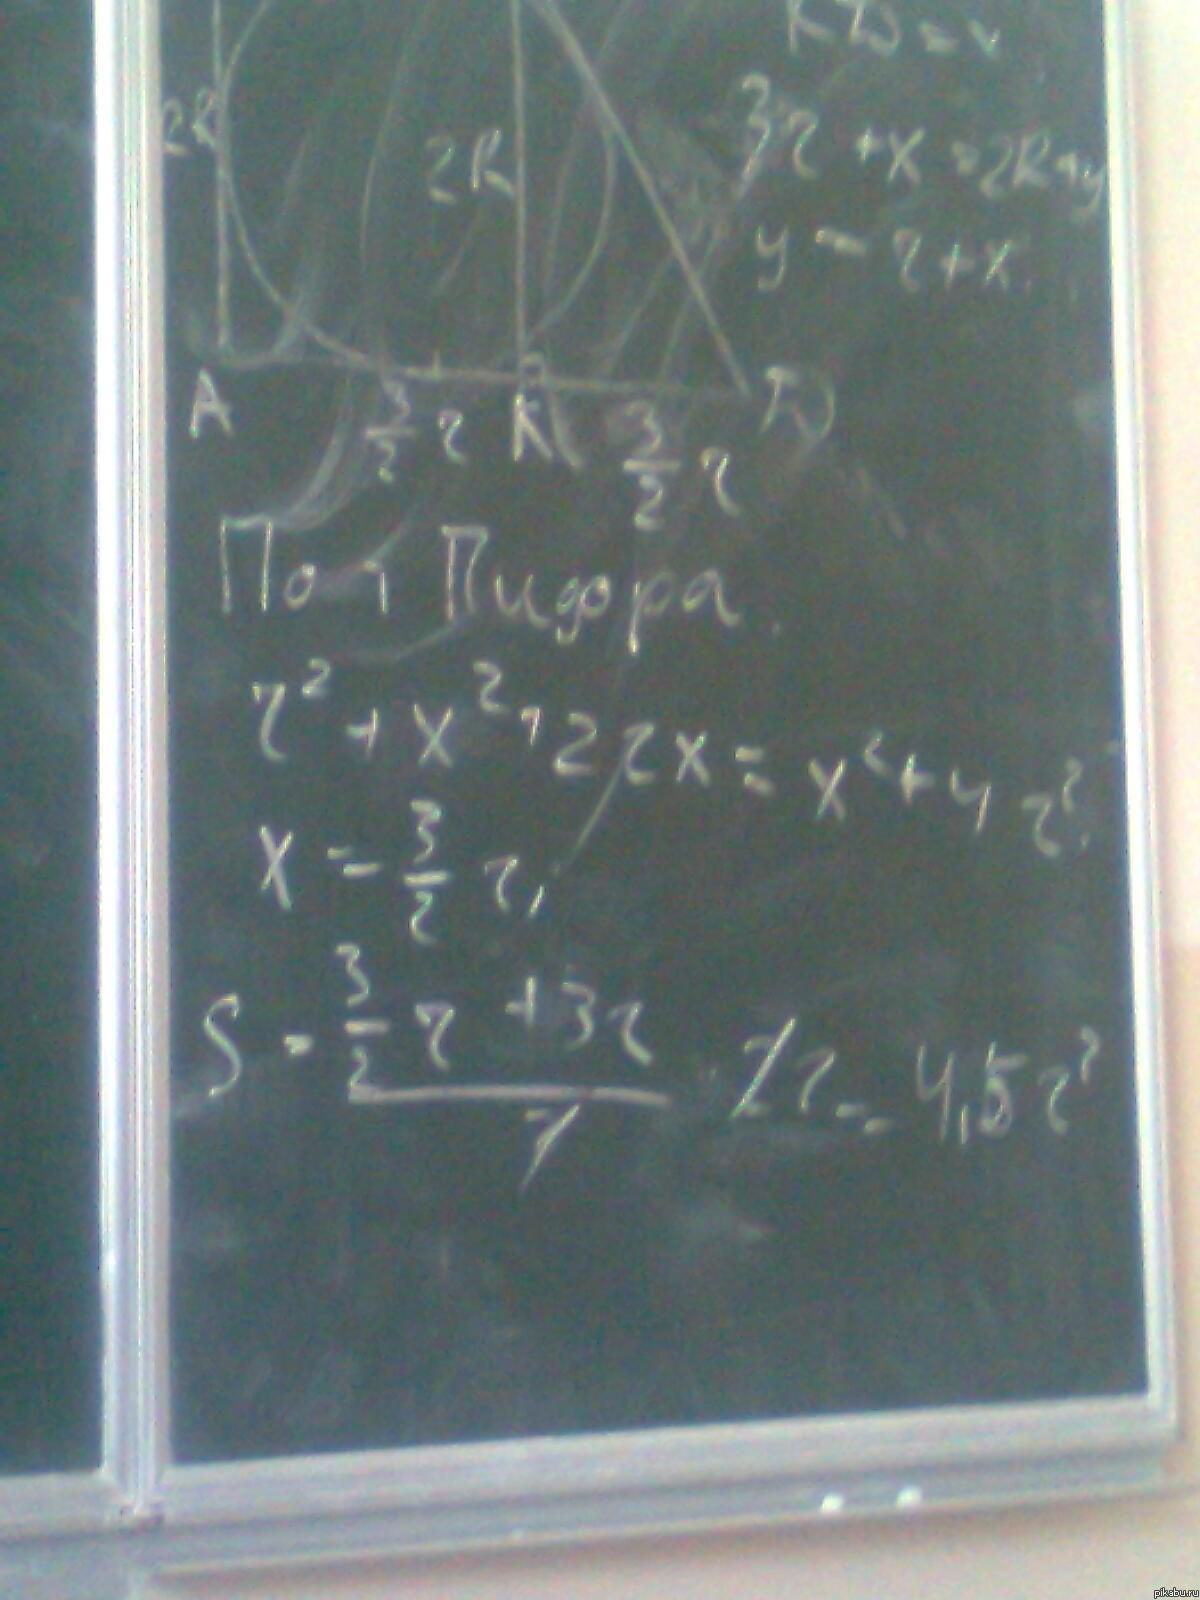 KD = x
2R
2R
3r + x = 2R + y
y = r + x.
A
K
D
3/2 r
3/2 r
По т Пидора.
r² + x² + 2rx = x² + 4r².
x = 3/2 r,
S = (3/2 r + 3r)/2 · 2r = 4,5r²
pikabu.ru